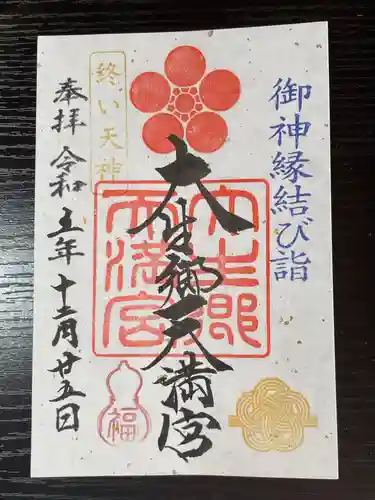 御神縁結び詣
大生郷天満宮
大生郷
天満宮
終い天神
奉拝 令和五年十二月廿五日
福